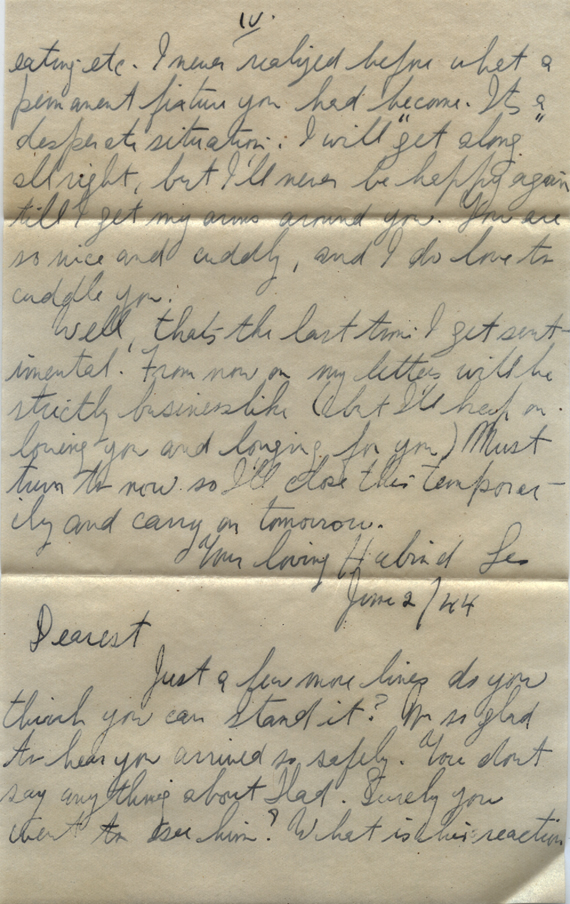 IV.
eating etc. I never realized before what a
permanent fixture you had become. Its a
desperate situation. I will "get along"
all right, but I'll never be happy again
till I get my arms around you. You are
so nice and cuddly, and I do love to
cuddle you.
Well, thats the last time I get sent-
imental. From now on my letters will be
strictly businesslike (but I'll keep on
loving you and longing for you) Must
turn in now so I'll close this temporar-
ily and carry on tomorrow.
Your loving Husband Les
June 2/44
Dearest
Just a few more lines do you
think you can stand it? I'm so glad
to hear you arrived so safely. You don't
say anything about Dad. Surely you
went to see him? What is his reaction